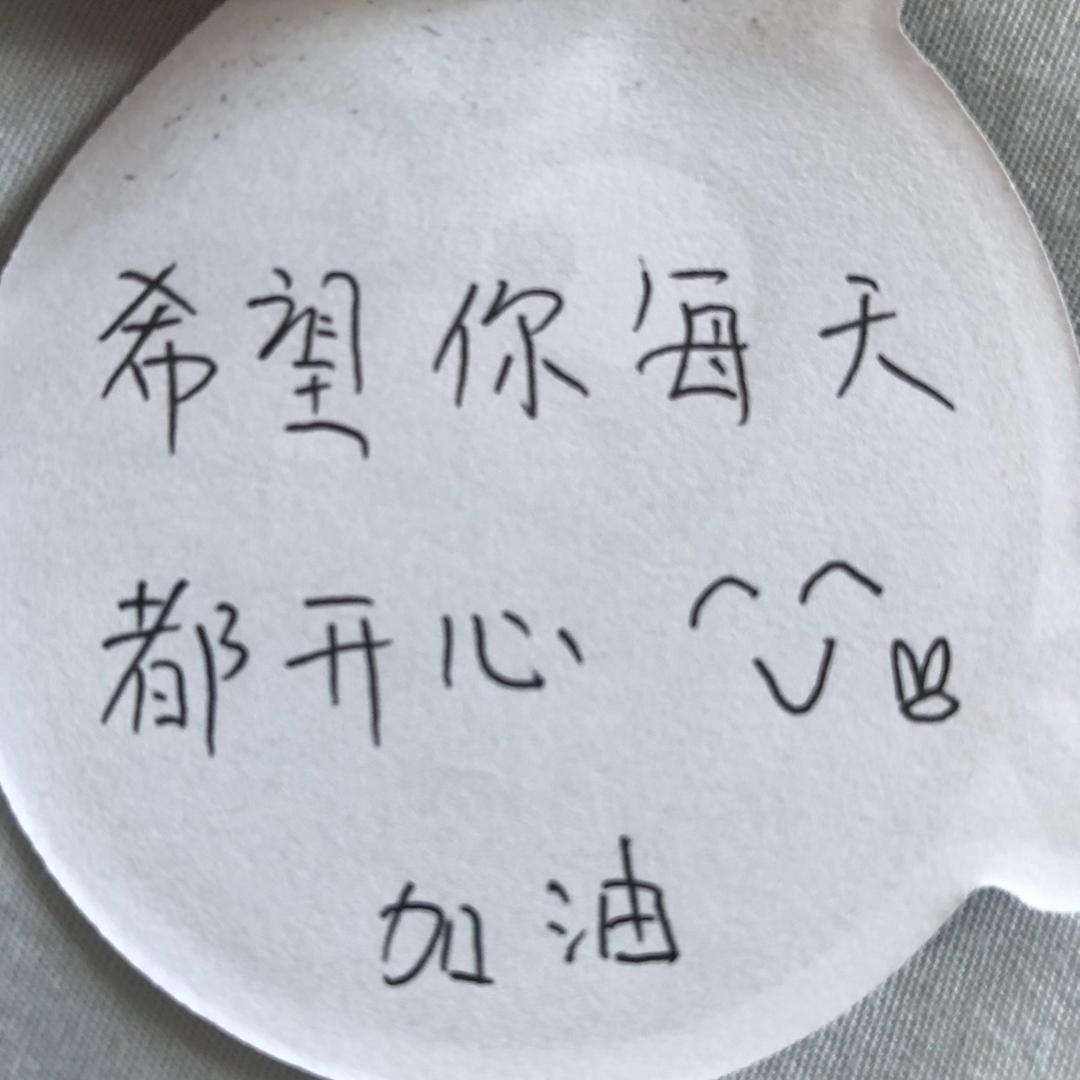 希望你每天
都开心
加油